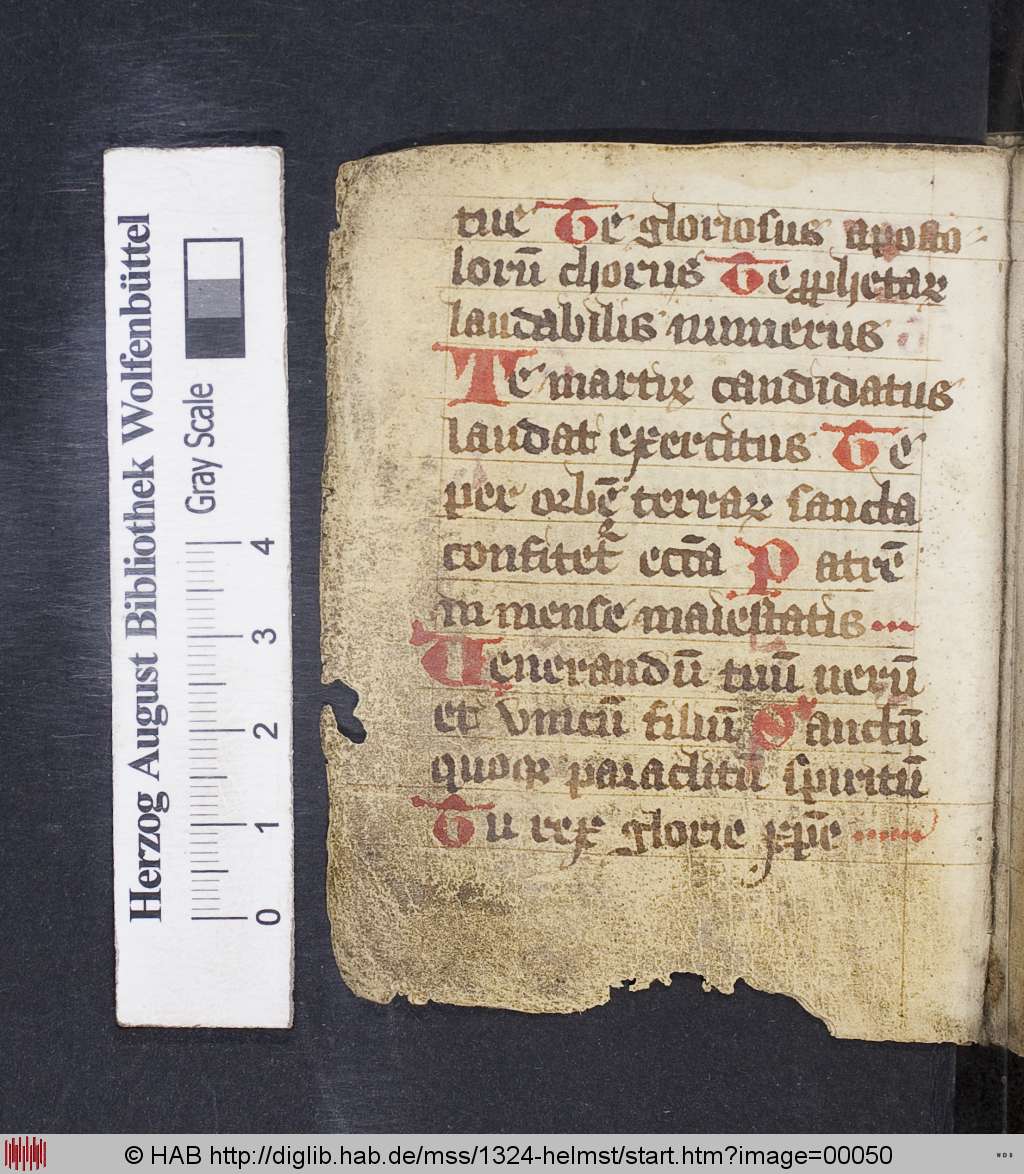 tue Te gloriosus aposto
lorū chorus Te ꝓphetaꝝ
laudabilis numerus
Te martiꝝ candidatus
laudat exercitus Te
per orbē terraꝝ sancta
confitet᷑ eccīa Patrē
in mense maiestatis
Uenerandū tuū uerū
et vnicū filiū Sanctū
quoqꝫ paraclitū spiritū
Tu rex glorie xp̄e
Herzog August Bibliothek Wolfenbüttel
Gray Scale
0 1 2 3 4
© HAB http://diglib.hab.de/mss/1324-helmst/start.htm?image=00050
WDB